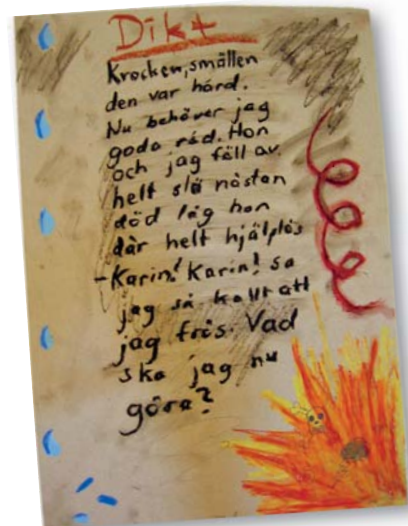 Dikt
Krocken, smällen
den var hård.
Nu behöver jag
goda råd. Hon
och jag föll av.
helt slö nästan
död låg hon
där helt hjälplös
-Karin! Karin! sa
jag så kallt att
jag frös. Vad
ska jag nu
göra?